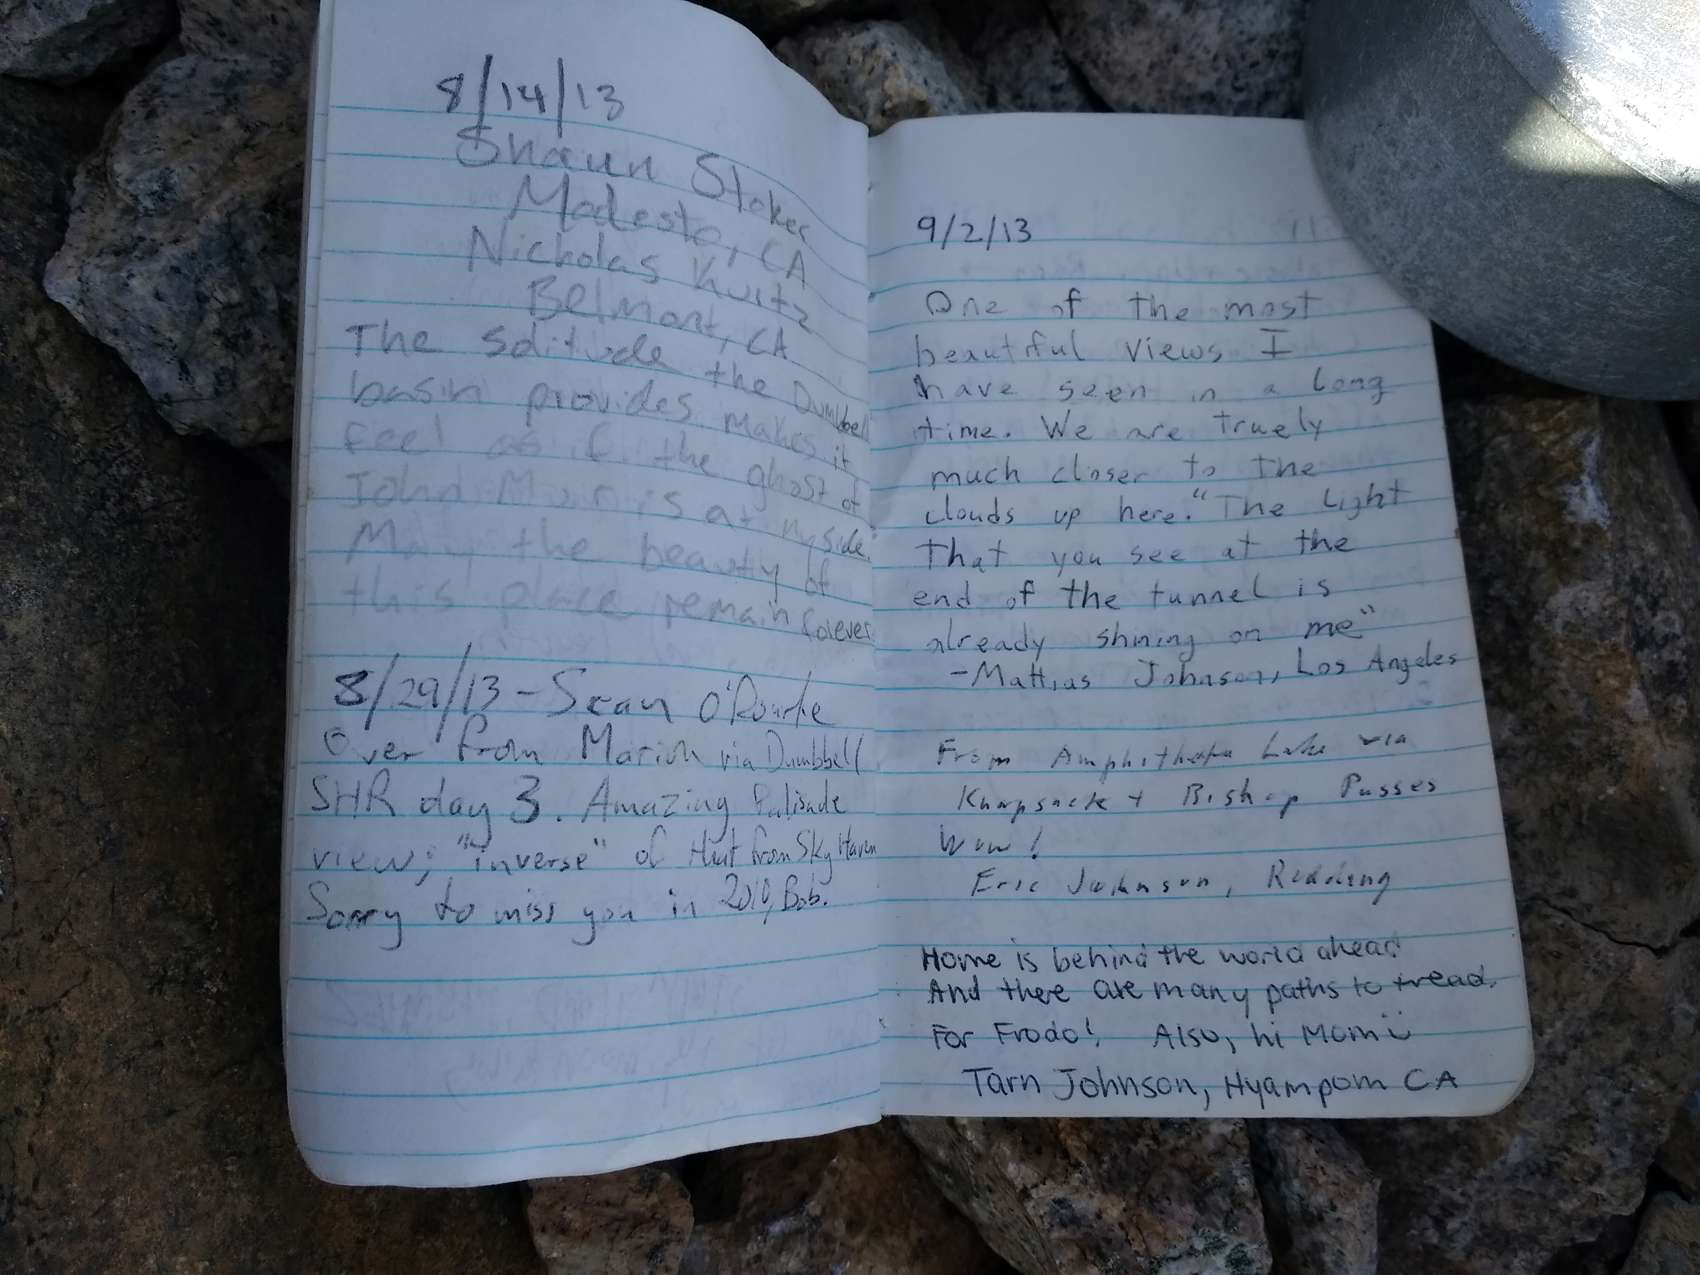 8/14/13
Shaun Stoker
Modesto, CA
Nicholas Kurtz
Belmont, CA
The solitude the Dumbbell
basin provides makes it
feel as if the ghost of
John Muir is at my side.
May the beauty of
this place remain forever
8/29/13 - Sean O'Rourke
Over from Marion via Dumbbell
SHR day 3. Amazing Palisade
view; "inverse" of that from Sky Haven
Sorry to miss you in 2010, Bob.
9/2/13
One of the most
beautiful views I
have seen in a long
time. We are truely
much closer to the
clouds up here. "The light
that you see at the
end of the tunnel is
already shining on me"
- Mattias Johnson, Los Angeles
From Amphitheater Lake via
Knapsack + Bishop Passes
Wow!
Eric Johnson, Redding
Home is behind the world ahead
And there are many paths to tread.
For Frodo! Also, hi Mom
Tarn Johnson, Hyampom CA